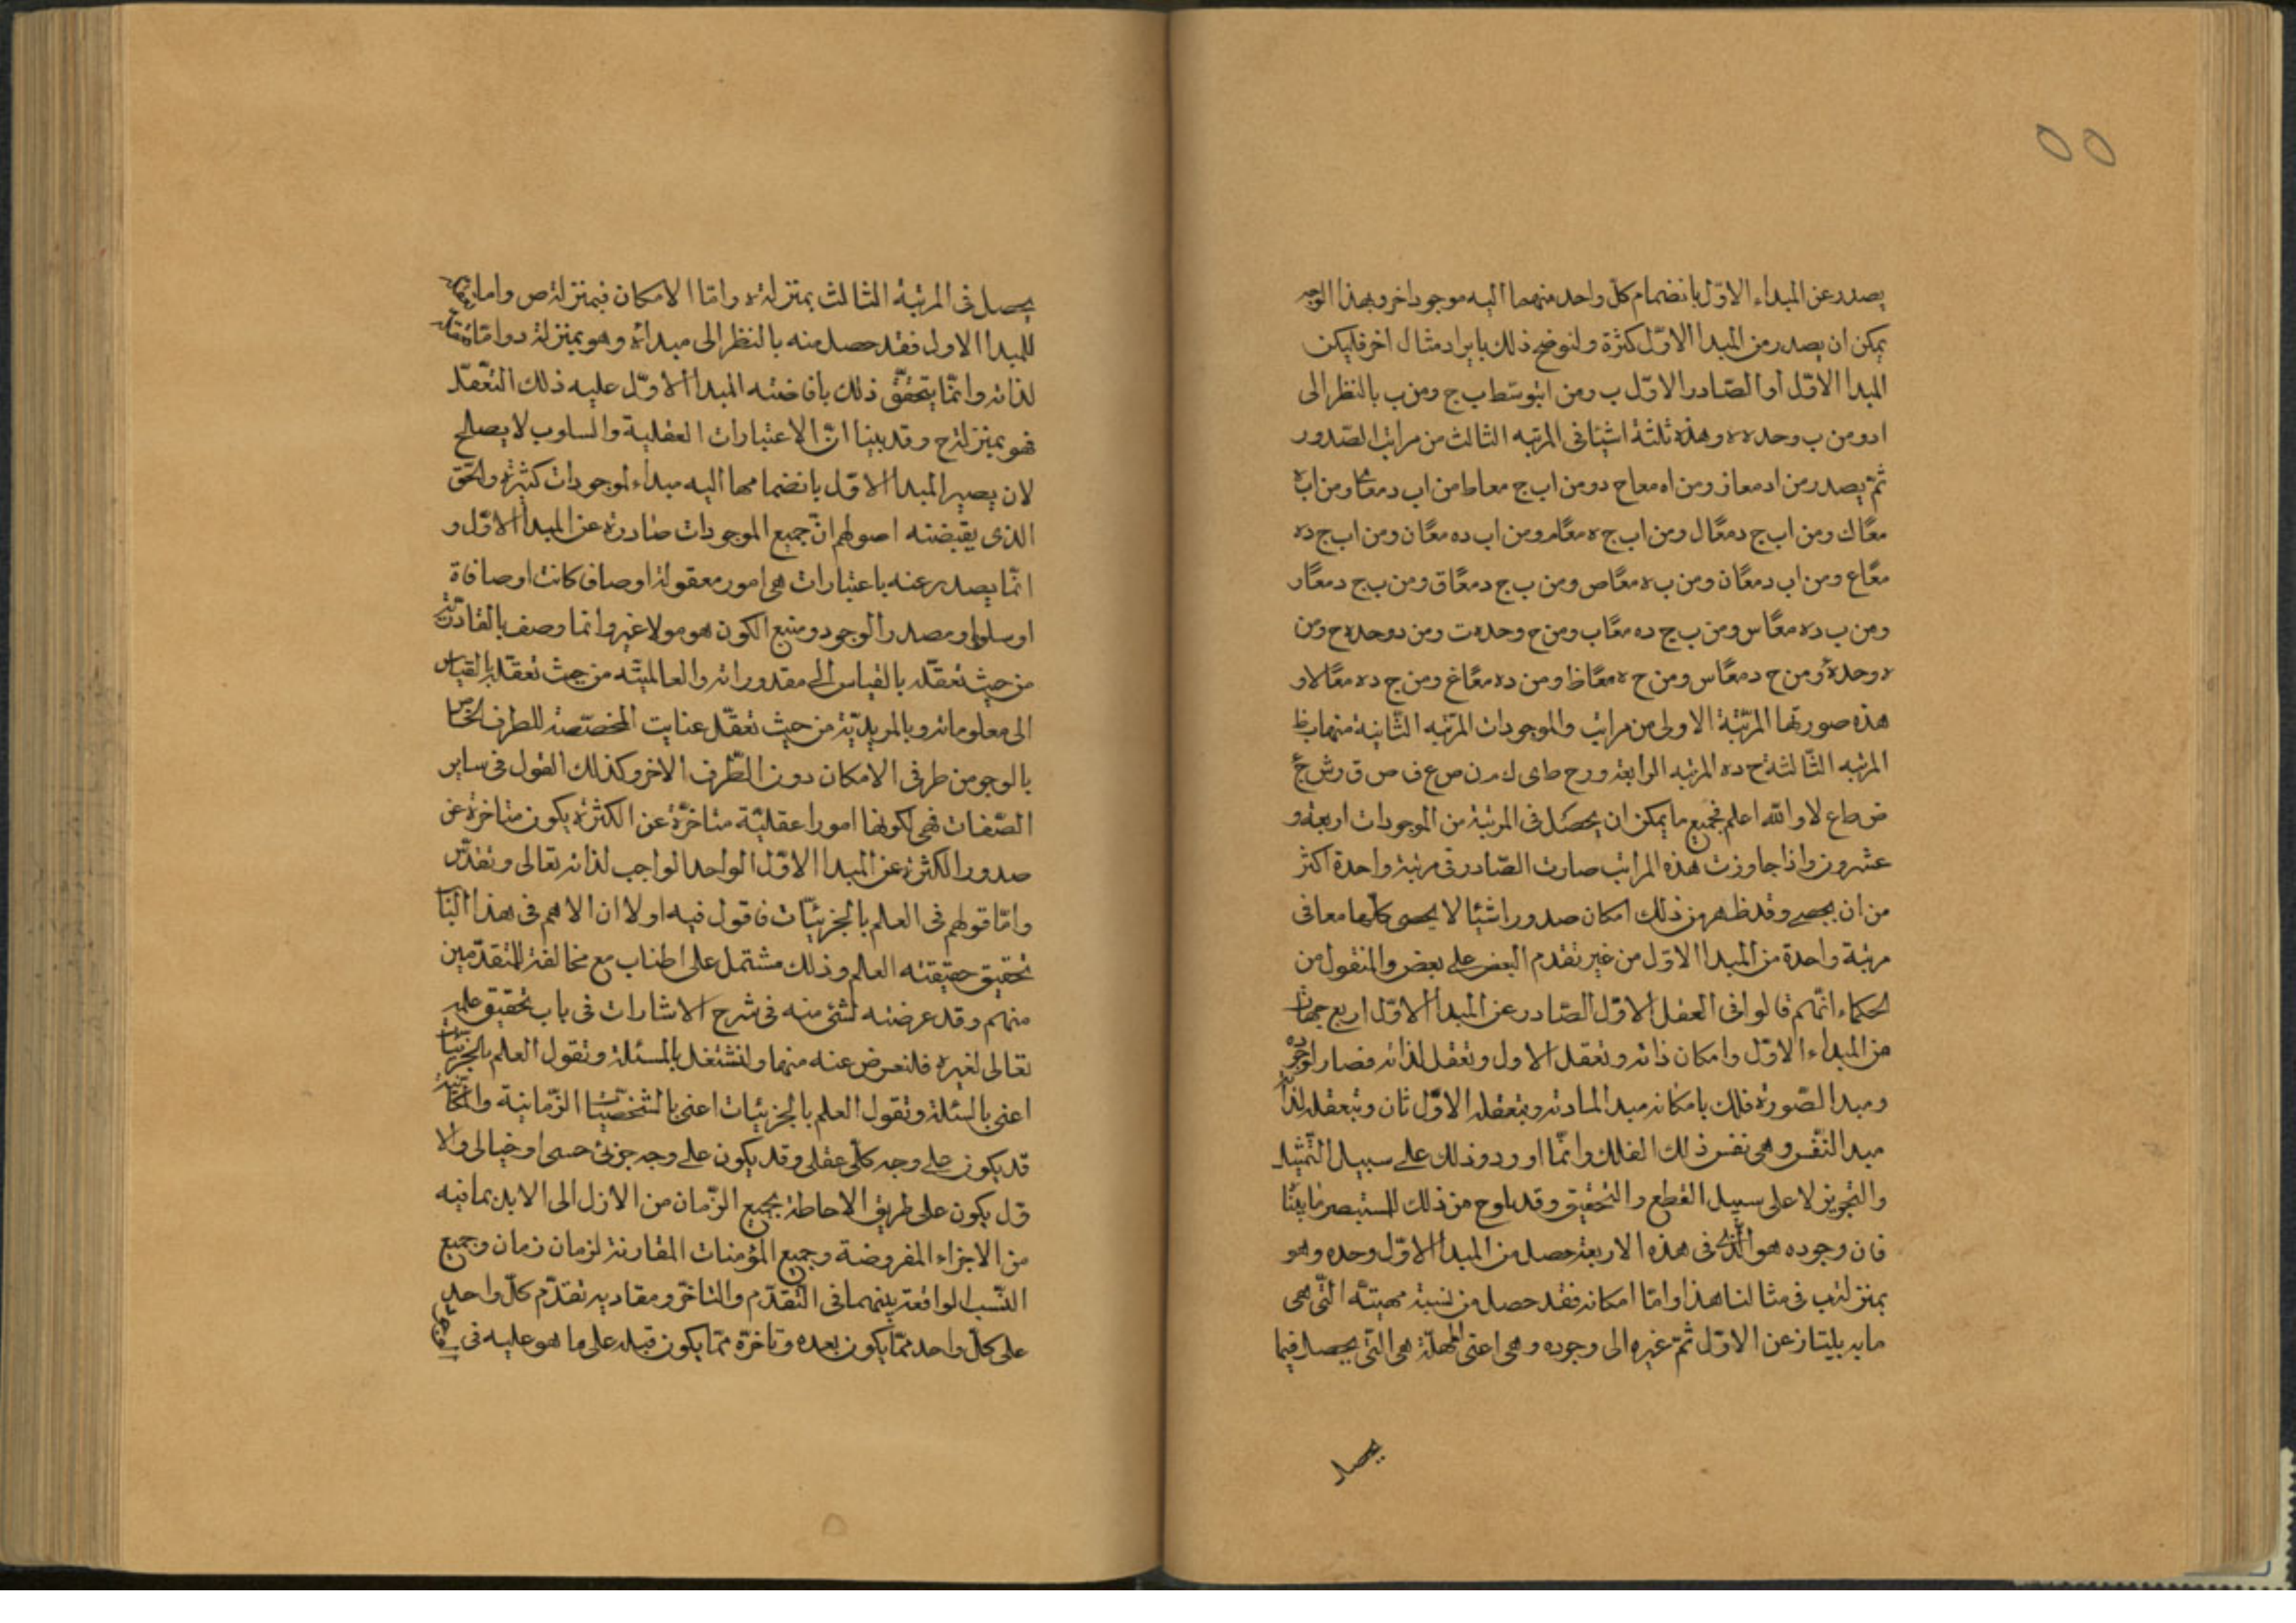 ٥٥
يصدر عن المبداء الاوّل بانضمام كلّ واحد منهما اليه موجود اخر وبهذا الوجه
يمكن ان يصدر من المبدا الاوّل كثرة ولنوضح ذلك بايراد مثال اخر فليكن
المبدا الاوّل ا والصّادر الاوّل ب ومن ا بتوسّط ب ج ومن ب بالنظر الى
ا د ومن ب وحده ه وهذه ثلثة اشيئا فى المرتبه الثالث من مراتب الصّدور
ثمّ يصدر من ا د معا ز ومن ا ه معا ح د ومن ا ب ج معا ط من ا ب د معًا ومن ا ب ه
معًا ك ومن ا ب ج د معًا ل ومن ا ب ج ه معًا م ومن ا ب د ه معًا ن ومن ا ب ج د ه
معًا ع ومن ا ب د معًا ن ومن ب ه معًا ص ومن ب ج د معًا ق ومن ب ج د معًا ر
ومن ب د ه معًا س ومن ب ج د ه معًا ب ومن ج وحده ت ومن د وحده ح ومن
ه وحدة ومن ح د معًا س ومن ح ه معًا ظ ومن د ه معًا غ ومن ج د ه معًا لا و
هذه صورتها المرتبة الاولى من مراتب والموجودات المرتبه الثّانية منها ب ظ
المرتبه الثّالثة ح د ه المرتبه الرابعة و ر ح ط ى ك م ن ص ع ف ص ق ر ش خ
ض ط اع لا والله اعلم فجميع ما يمكن ان يحصل فى المرتبة من الموجودات اربعة و
عشرون واذا جاوزت هذه المراتب صارت الصّادر فى مرتبة واحدة اكثر
من ان يحصى وقد ظهر من ذلك امكان صدور اشيئا لا يحصى كلّها معا فى
مرتبة واحدة من المبدا الاوّل من غير تقدم البعض على بعض والمنقول من
الحكماء انّهم قالوا فى العقل الاوّل الصّادر عن المبدا الاوّل اربع جهات
من المبداء الاوّل وامكان ذاته وتعقل الاول وتعقل لذاته فصار لوجوده
ومبدا الصّورة فلك بامكانه مبدا لمادته وبتعقله الاوّل ثان وبتعقله لذاته
مبدا النّفس وهى نفس ذلك الفلك وانّما اوردوا ذلك على سبيل التّمثيل
والتجويز لا على سبيل القطع والتحقيق وقد يلوح من ذلك للمستبصر ما بيّنا
فان وجوده هو الّذى فى هذه الاربعة حصل من المبدا الاوّل وحده وهو
بمنزلة ب فى مثالنا هذا وامّا امكانه فقد حصل من نسبة مهيته الّتى هى
ما به يليتاز عن الاوّل ثمّ غيره الى وجوده وهى اعنى المهلة هى الّتى يحصل فيما
يحصل
يحصل فى المرتبه الثالث بمنزلة ه وامّا الامكان فبمنزلة ص واما تعقله
للمبدا الاول فقد حصل منه بالنظر الى مبدائه وهو بمنزلة د وامّا تعقله
لذاته وانّما يتحقّق ذلك بافاضته المبدا الاوّل عليه ذلك التعّقل
فهو بمنزلة ح وقد بينا انّ الاعتبارات العقلية والسلوب لا يصلح
لان يصير المبدا الاوّل بانضمامها اليه مبداء لموجودات كثيرة والحّق
الذى يقتضته اصولهم انّ جميع الموجودات صادرة عن المبدا الاوّل و
انّما يصدر عنه باعتبارات هى امور معقولة اوصاف كانت او صافاة
او سلوبا ومصدر الوجود ومنبع الكون هو مولا غير وانما وصف بالقادريّة
من حيث تعقّله بالقياس الى مقدوراته والعالميّته من حيث تعقّله بالقياس
الى معلوماته وبالمريديّة من حيث تعقّل عنايت المخصّصة للطرف الخاصّ
بالوجو من طرفى الامكان دون الطّرف الاخر وكذلك القول فى ساير
الصّفات فهى لكونها امورا عقليّة متاخرّة عن الكثرة يكون متاخرة عن
صدور الكثرة عن المبدا الاوّل الواحد الواجب لذاته تعالى وتقدّس
وامّا قولهم فى العلم بالجزئيّات فاقول فيه اولا ان الاهم فى هذا البٰاب
تحقيق حقيقته العلم وذلك مشتمل على اطناب مع مخالفة للمتقدّمين
منهم وقد عرضته لشئ منه فى شرح الاشارات فى باب تحقيق علمه
تعالى لغيره فلنعرض عنه منها ولنشتغل بالمسئلة ونقول العلم بالجزئيات
اعنى بالسئلة ونقول العلم بالجزئيات اعنى بالشخصّيّات الزّمانية والمكانيّة
قد يكون على وجه كلّى عقلى وقد يكون على وجه جزئ حسى او خيالى والا
ول يكون على طريق الاحاطة بجميع الزّمان من الازل الى الابد بمافيه
من الاجزاء المفروضة وجميع المؤمنات المقارنة لزمان زمان وجميع
النّسب الواقعة بينهما فى التّقدّم والتاخّر ومقادير تقدّم كلّ واحد
على كلّ واحد ممّا يكون بعده وتاخرّه ممّا يكون قبله على ما هو عليه فى